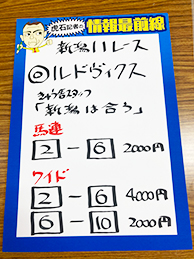 虎石記者の
情報最前線
新潟11レース
◎ルドヴィクス
きゅう舎スタッフ
「新潟は合う」
馬連
2－6 2000円
ワイド
2－6 4000円
6－10 2000円